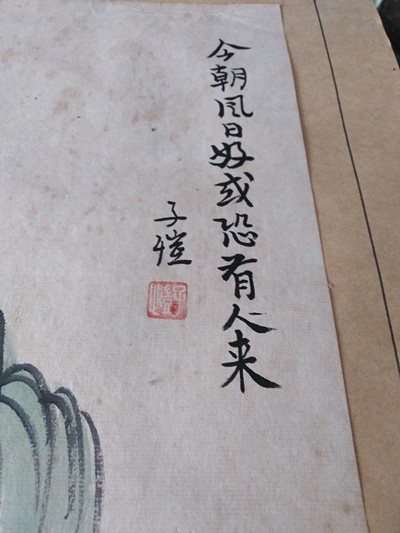 今朝风日好或恐有人来
子恺